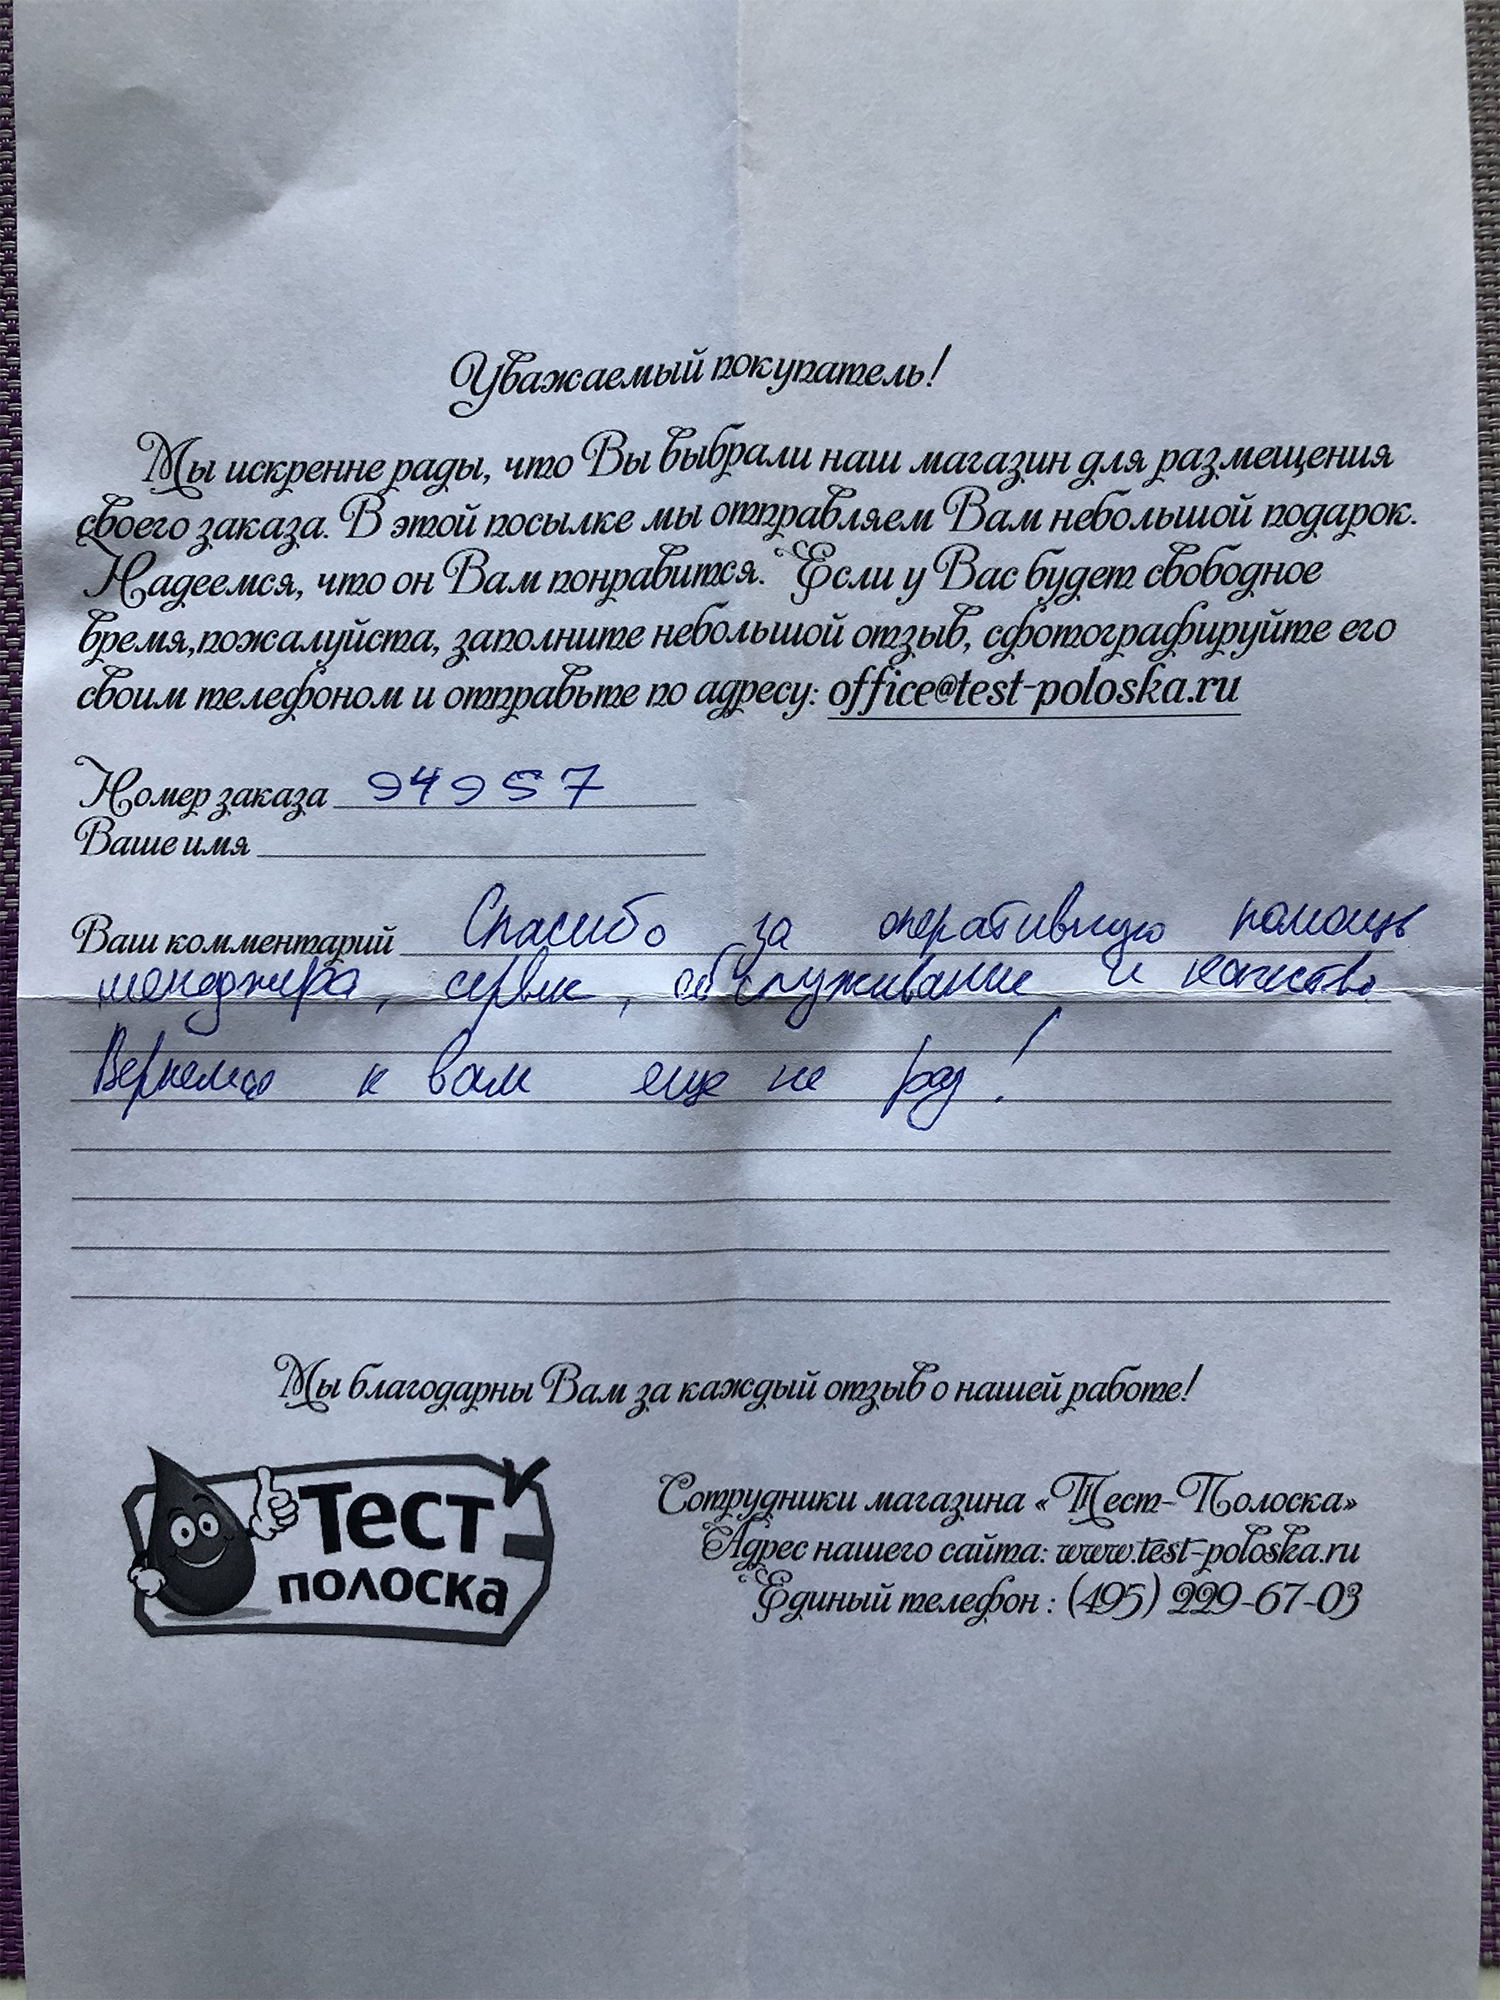 Уважаемый покупатель!
Мы искренне рады, что Вы выбрали наш магазин для размещения
своего заказа. В этой посылке мы отправляем Вам небольшой подарок.
Надеемся, что он Вам понравится. Если у Вас будет свободное
время,пожалуйста, заполните небольшой отзыв, сфотографируйте его
своим телефоном и отправьте по адресу: office@test-poloska.ru
Номер заказа 94957
Ваше имя
Ваш комментарий Спасибо за оперативную помощь
менеджера, сервис, обслуживание и качество
Вернемся к вам еще не раз!
Мы благодарны Вам за каждый отзыв о нашей работе!
Тест
полоска
Сотрудники магазина «Тест-Полоска»
Адрес нашего сайта: www.test-poloska.ru
Единый телефон : (495) 229-67-03